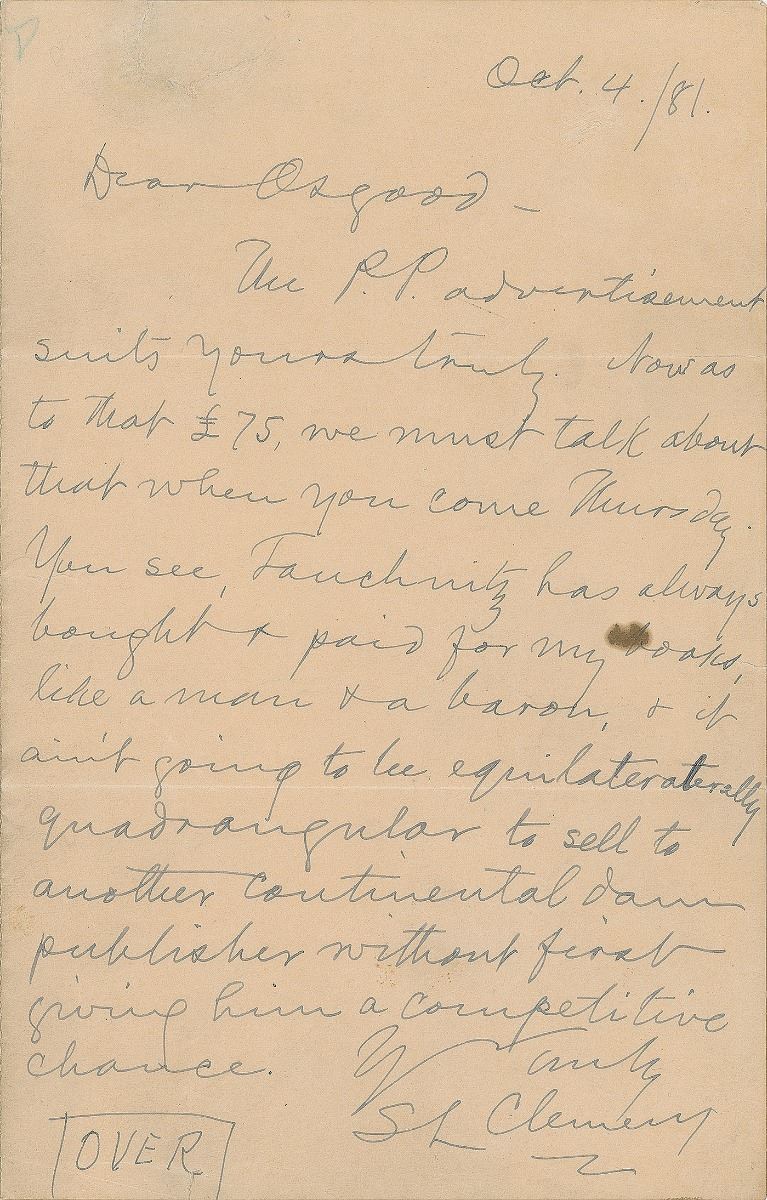 Oct. 4./81.
Dear Osgood –
The P.P. advertisement
suits yours truly. Now as
to that £75, we must talk about
that when you come Thursday.
You see, Tauchnitz has always
bought & paid for my books,
like a man & a baron, & it
ain't going to be equilateraterally
quadrangular to sell to
another continental dam
publisher without first
giving him a competitive
chance. Y Truly
SL Clemens
OVER.